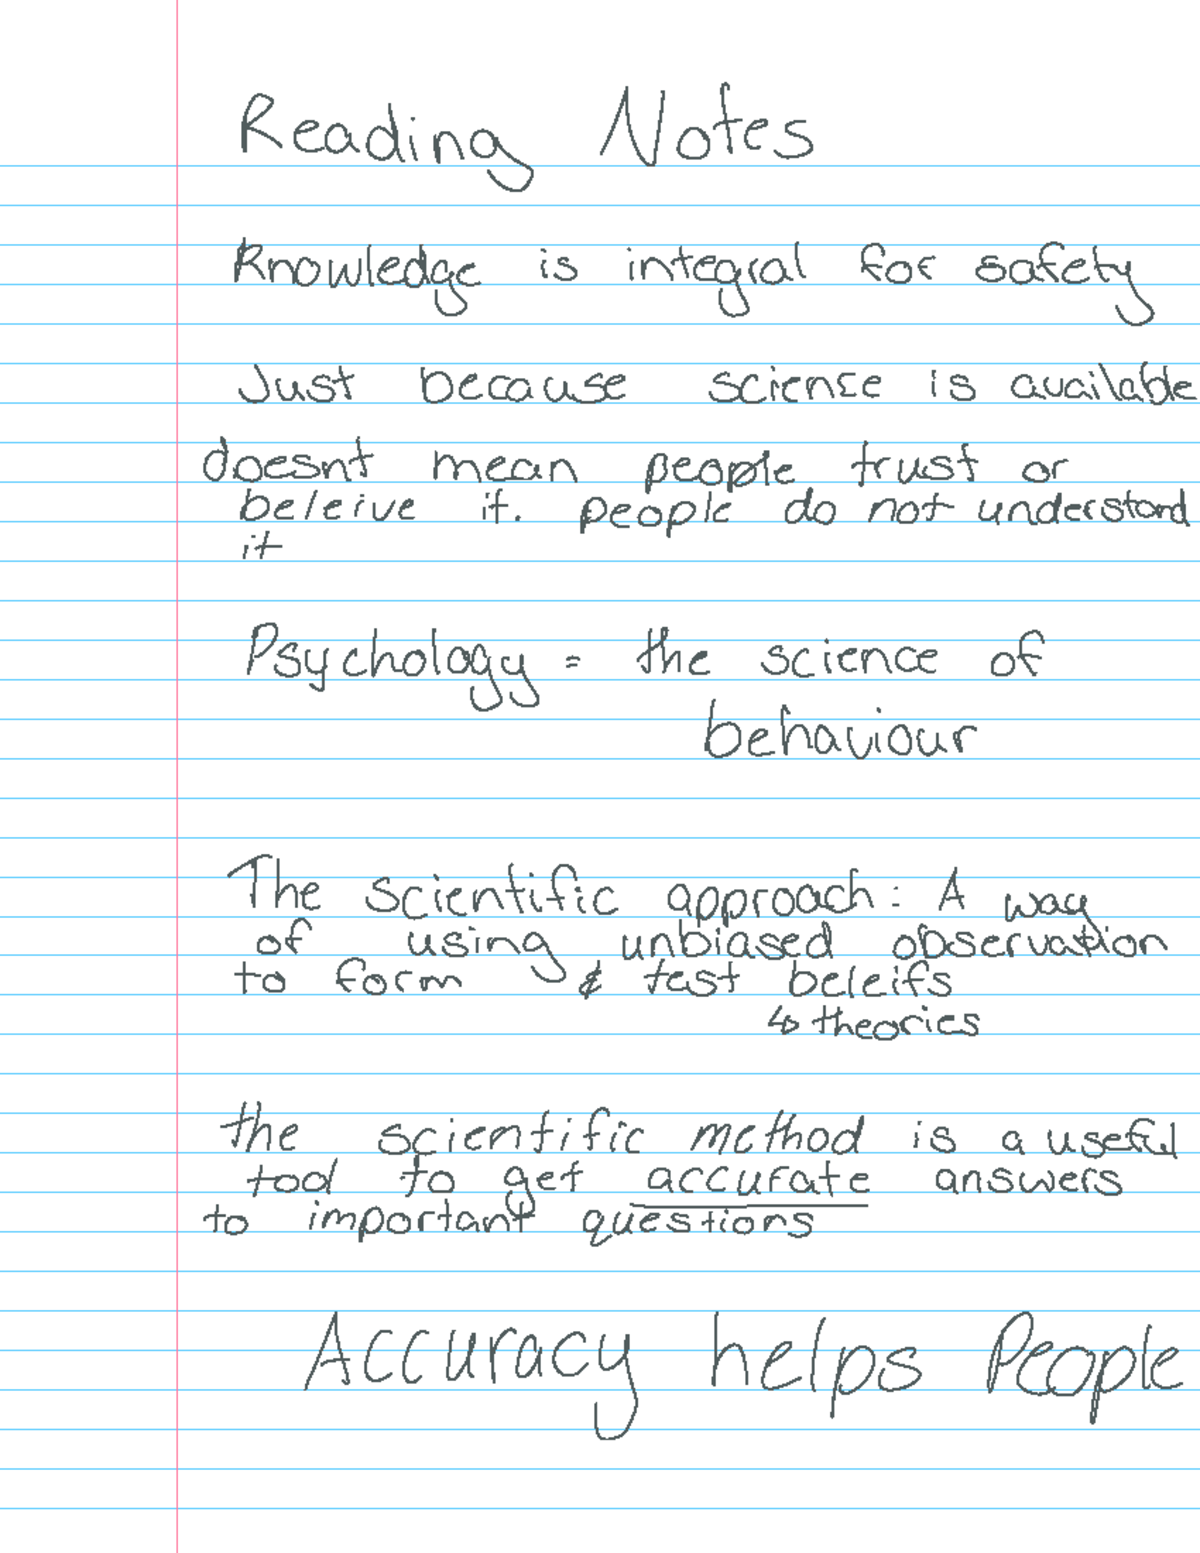 Reading Notes
Knowledge is integral for safety
Just because science is available
doesnt mean people trust or
beleive it. people do not understand
it
Psychology = the science of
behaviour
The scientific approach: A way
of using unbiased observation
to form & test beleifs
↳ theories
the scientific method is a useful
tool to get accurate answers
to important questions
Accuracy helps People